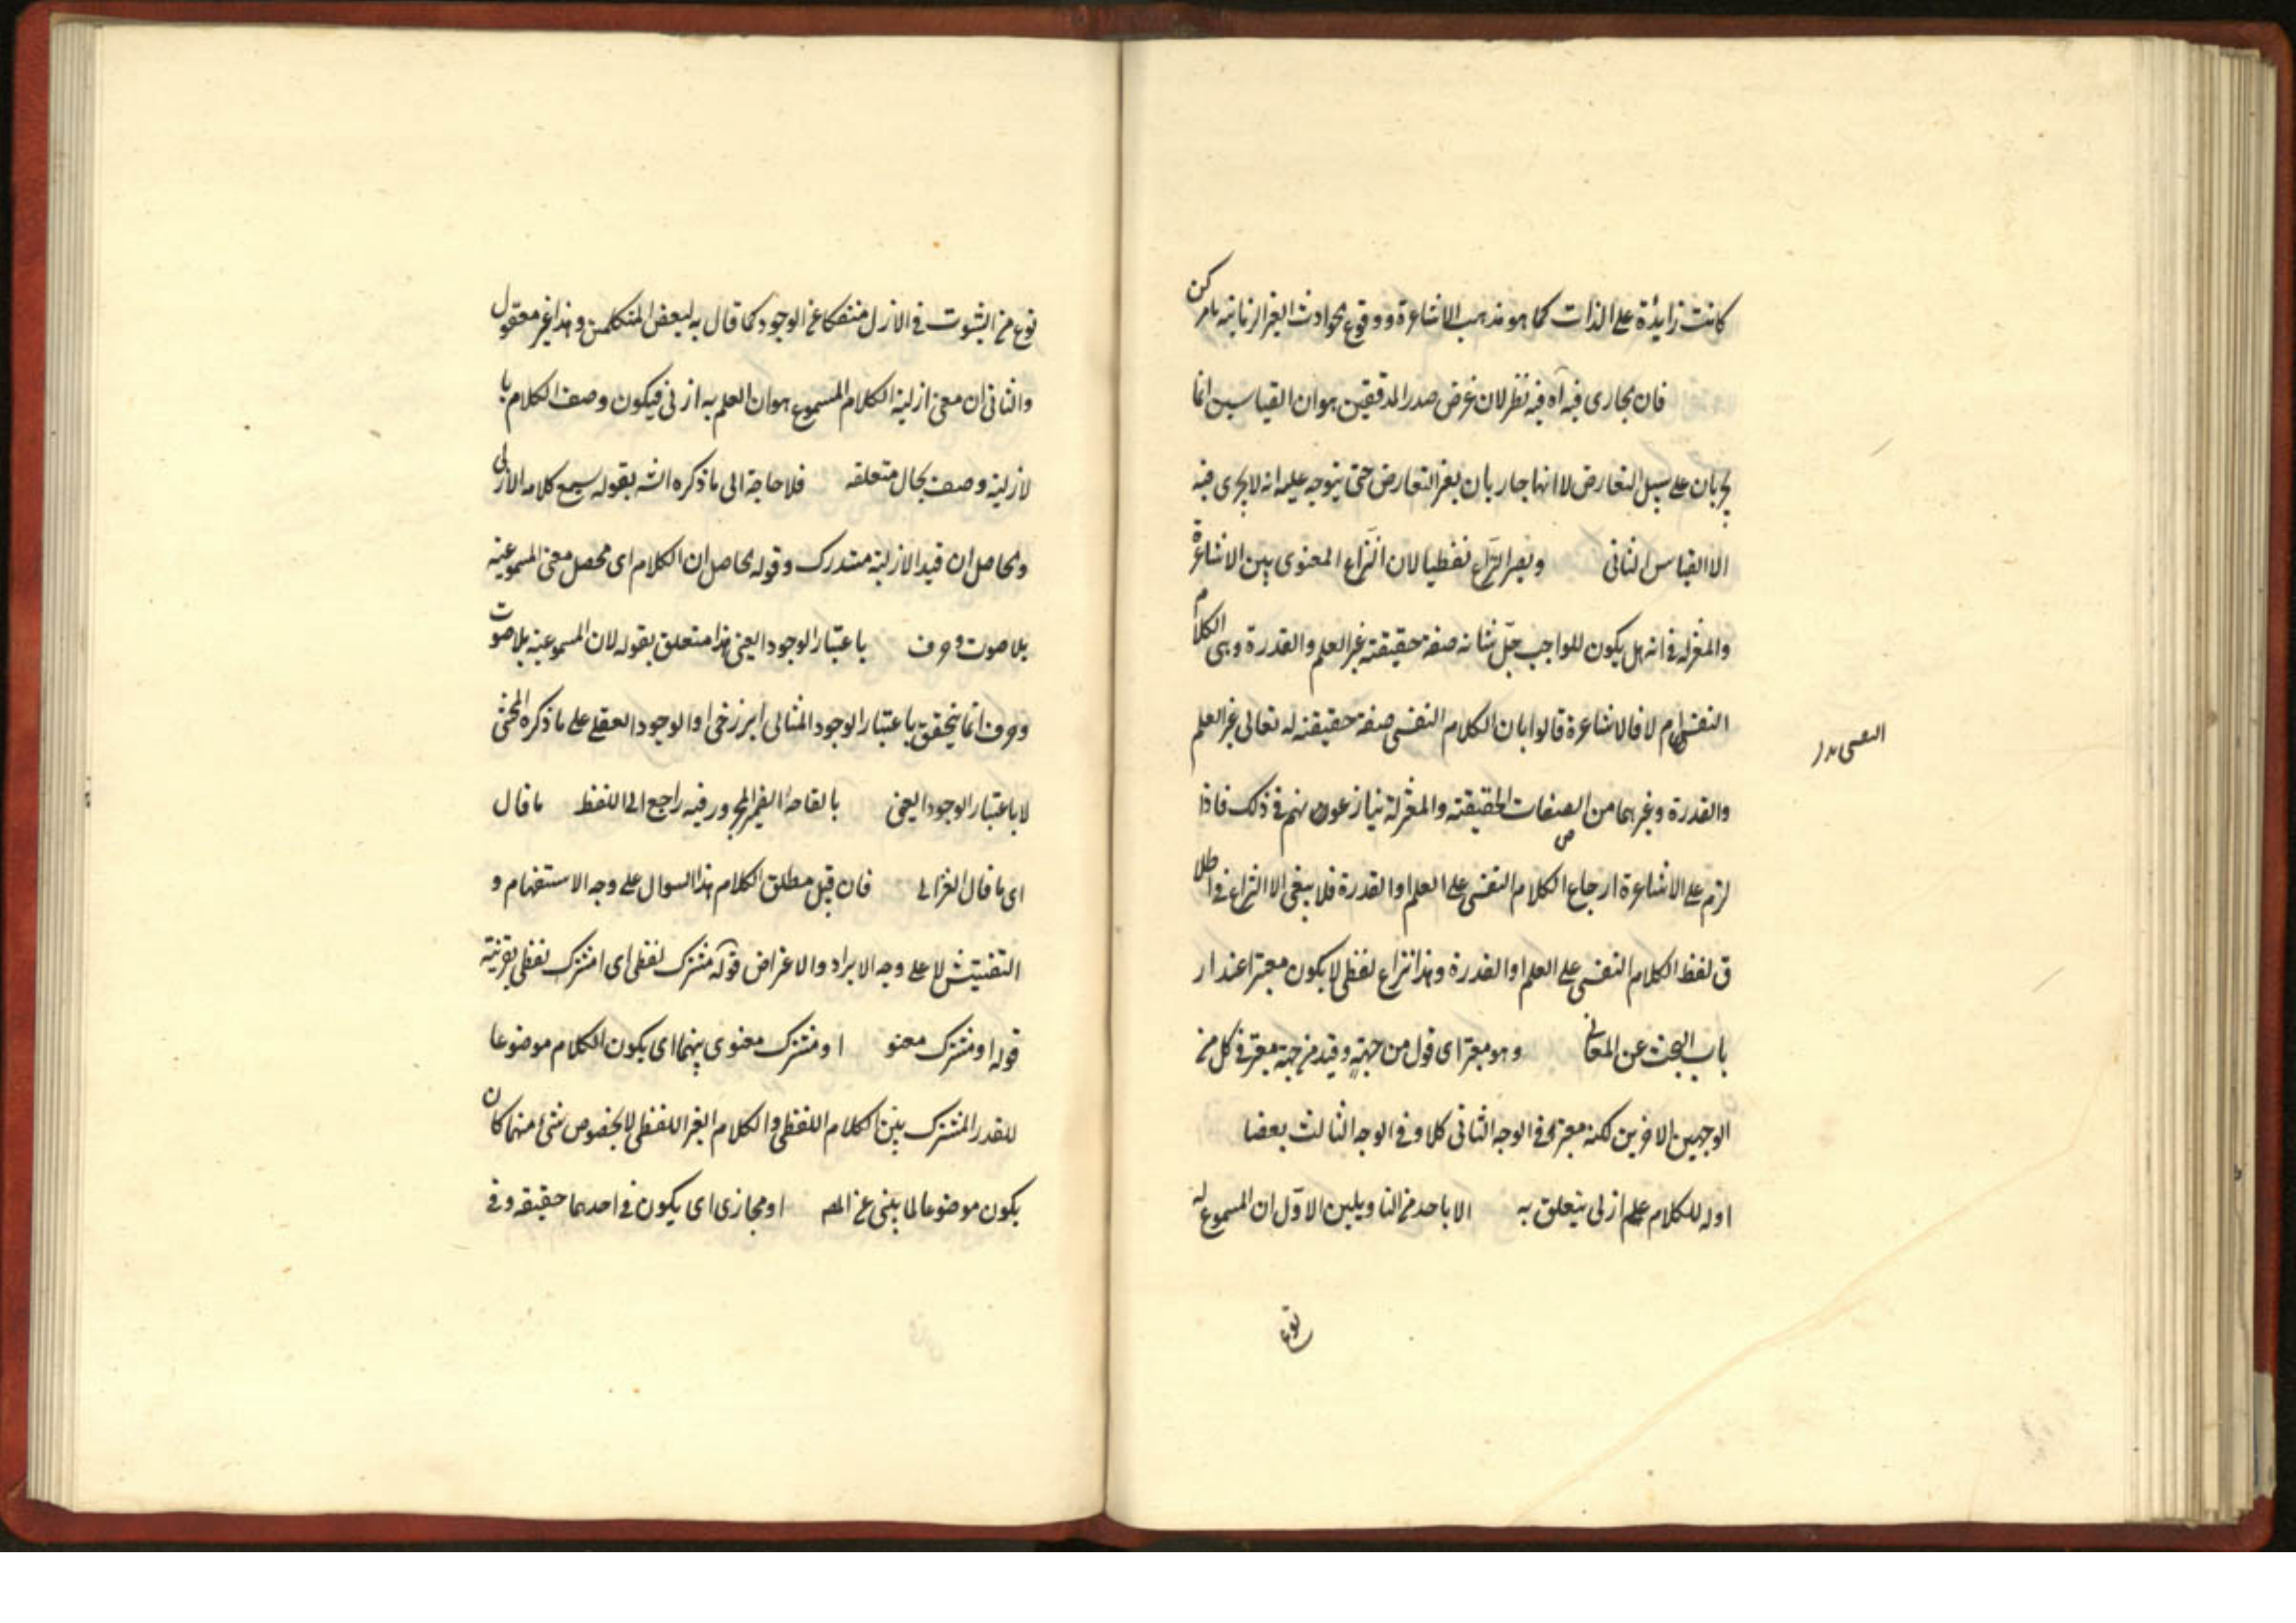 كانت زايدة على الذات كما هو مذهب الاشاعرة ووقوع الحوادث الغير الزمانية بامر كن
فان مجارى فيه آه فيه نظر لان غرض صدر المدققين هو ان القياسين انما
يجريان على سبيل التعارض لا انهما جاريان بغير التعارض حتى يتوجه عليه انه لا يجرى فيه
الا القياس الثانى ويصير النزاع لفظيا لان النزاع المعنوى بين الاشاعرة
والمعتزله فى انه هل يكون للواجب جل شانه صفة حقيقته غير العلم والقدرة وهى الكلام
النفسى ام لا فالاشاعرة قالوا بان الكلام النفسى صفة حقيقته له تعالى غير العلم
والقدرة وغيرهما من الصفات الحقيقته والمعتزلة ينازعون منهم فى ذلك فاذا
لزم على الاشاعرة ارجاع الكلام النفسى على العلم او القدرة فلا يبقى الا النزاع فى اطلا
ق لفظ الكلام النفسى على العلم او القدرة وهذا نزاع لفظى لا يكون معتبرا عند ار
باب البحث عن المعانى وهو معتبر اى قول من جهته وقيد من جهة معتبر فى كل من
الوجهين الاخرين لكنه معتبر فى الوجه الثانى كلا وفى الوجه الثالث بعضا
اوله للكلام علم ازلى يتعلق به الا باحد من التاويلين الاول ان المسموع له
نوع
نوع من الثبوت فى الازل منفكا عن الوجود كما قال به بعض المتكلمين وهذا غير معقول
والثانى ان معنى ازلية الكلام المسموع هو ان العلم به ازلى فيكون وصف الكلام با
لازلية وصف بحال متعلقه فلا حاجة الى ما ذكره الشه بقوله يسمع كلامه الازلى
والحاصل ان قيد الازلية مستدرك وقوله حاصل ان الكلام اى محصل معنى المسموعية
بلا صوت وحرف باعتبار الوجود العينى هذا متعلق بقوله لان المسموعية بلا صوت
وحرف انما يتحقق باعتبار الوجود المثالى البرزخى او الوجود العقلى على ما ذكره المحشى
لا باعتبار الوجود العينى بالقاه الضمير المجرور فيه راجع الى اللفظ ما قال
اى ما قال الغزالى فان قيل مطلق الكلام هذا السوال على وجه الاستفهام و
التفتيش لا على وجه الايراد والاعتراض قوله مشترك لفظى اى امشترك لفظى بقرينة
قوله او مشترك معنو او مشترك معنوى بينهما اى يكون الكلام موضوعا
للقدر المشترك بين الكلام اللفظى والكلام الغير اللفظى لا بخصوص شئ منهما كان
يكون موضوعا لما ينبى عن المعه او مجازى اى يكون فى احدهما حقيقه وفى